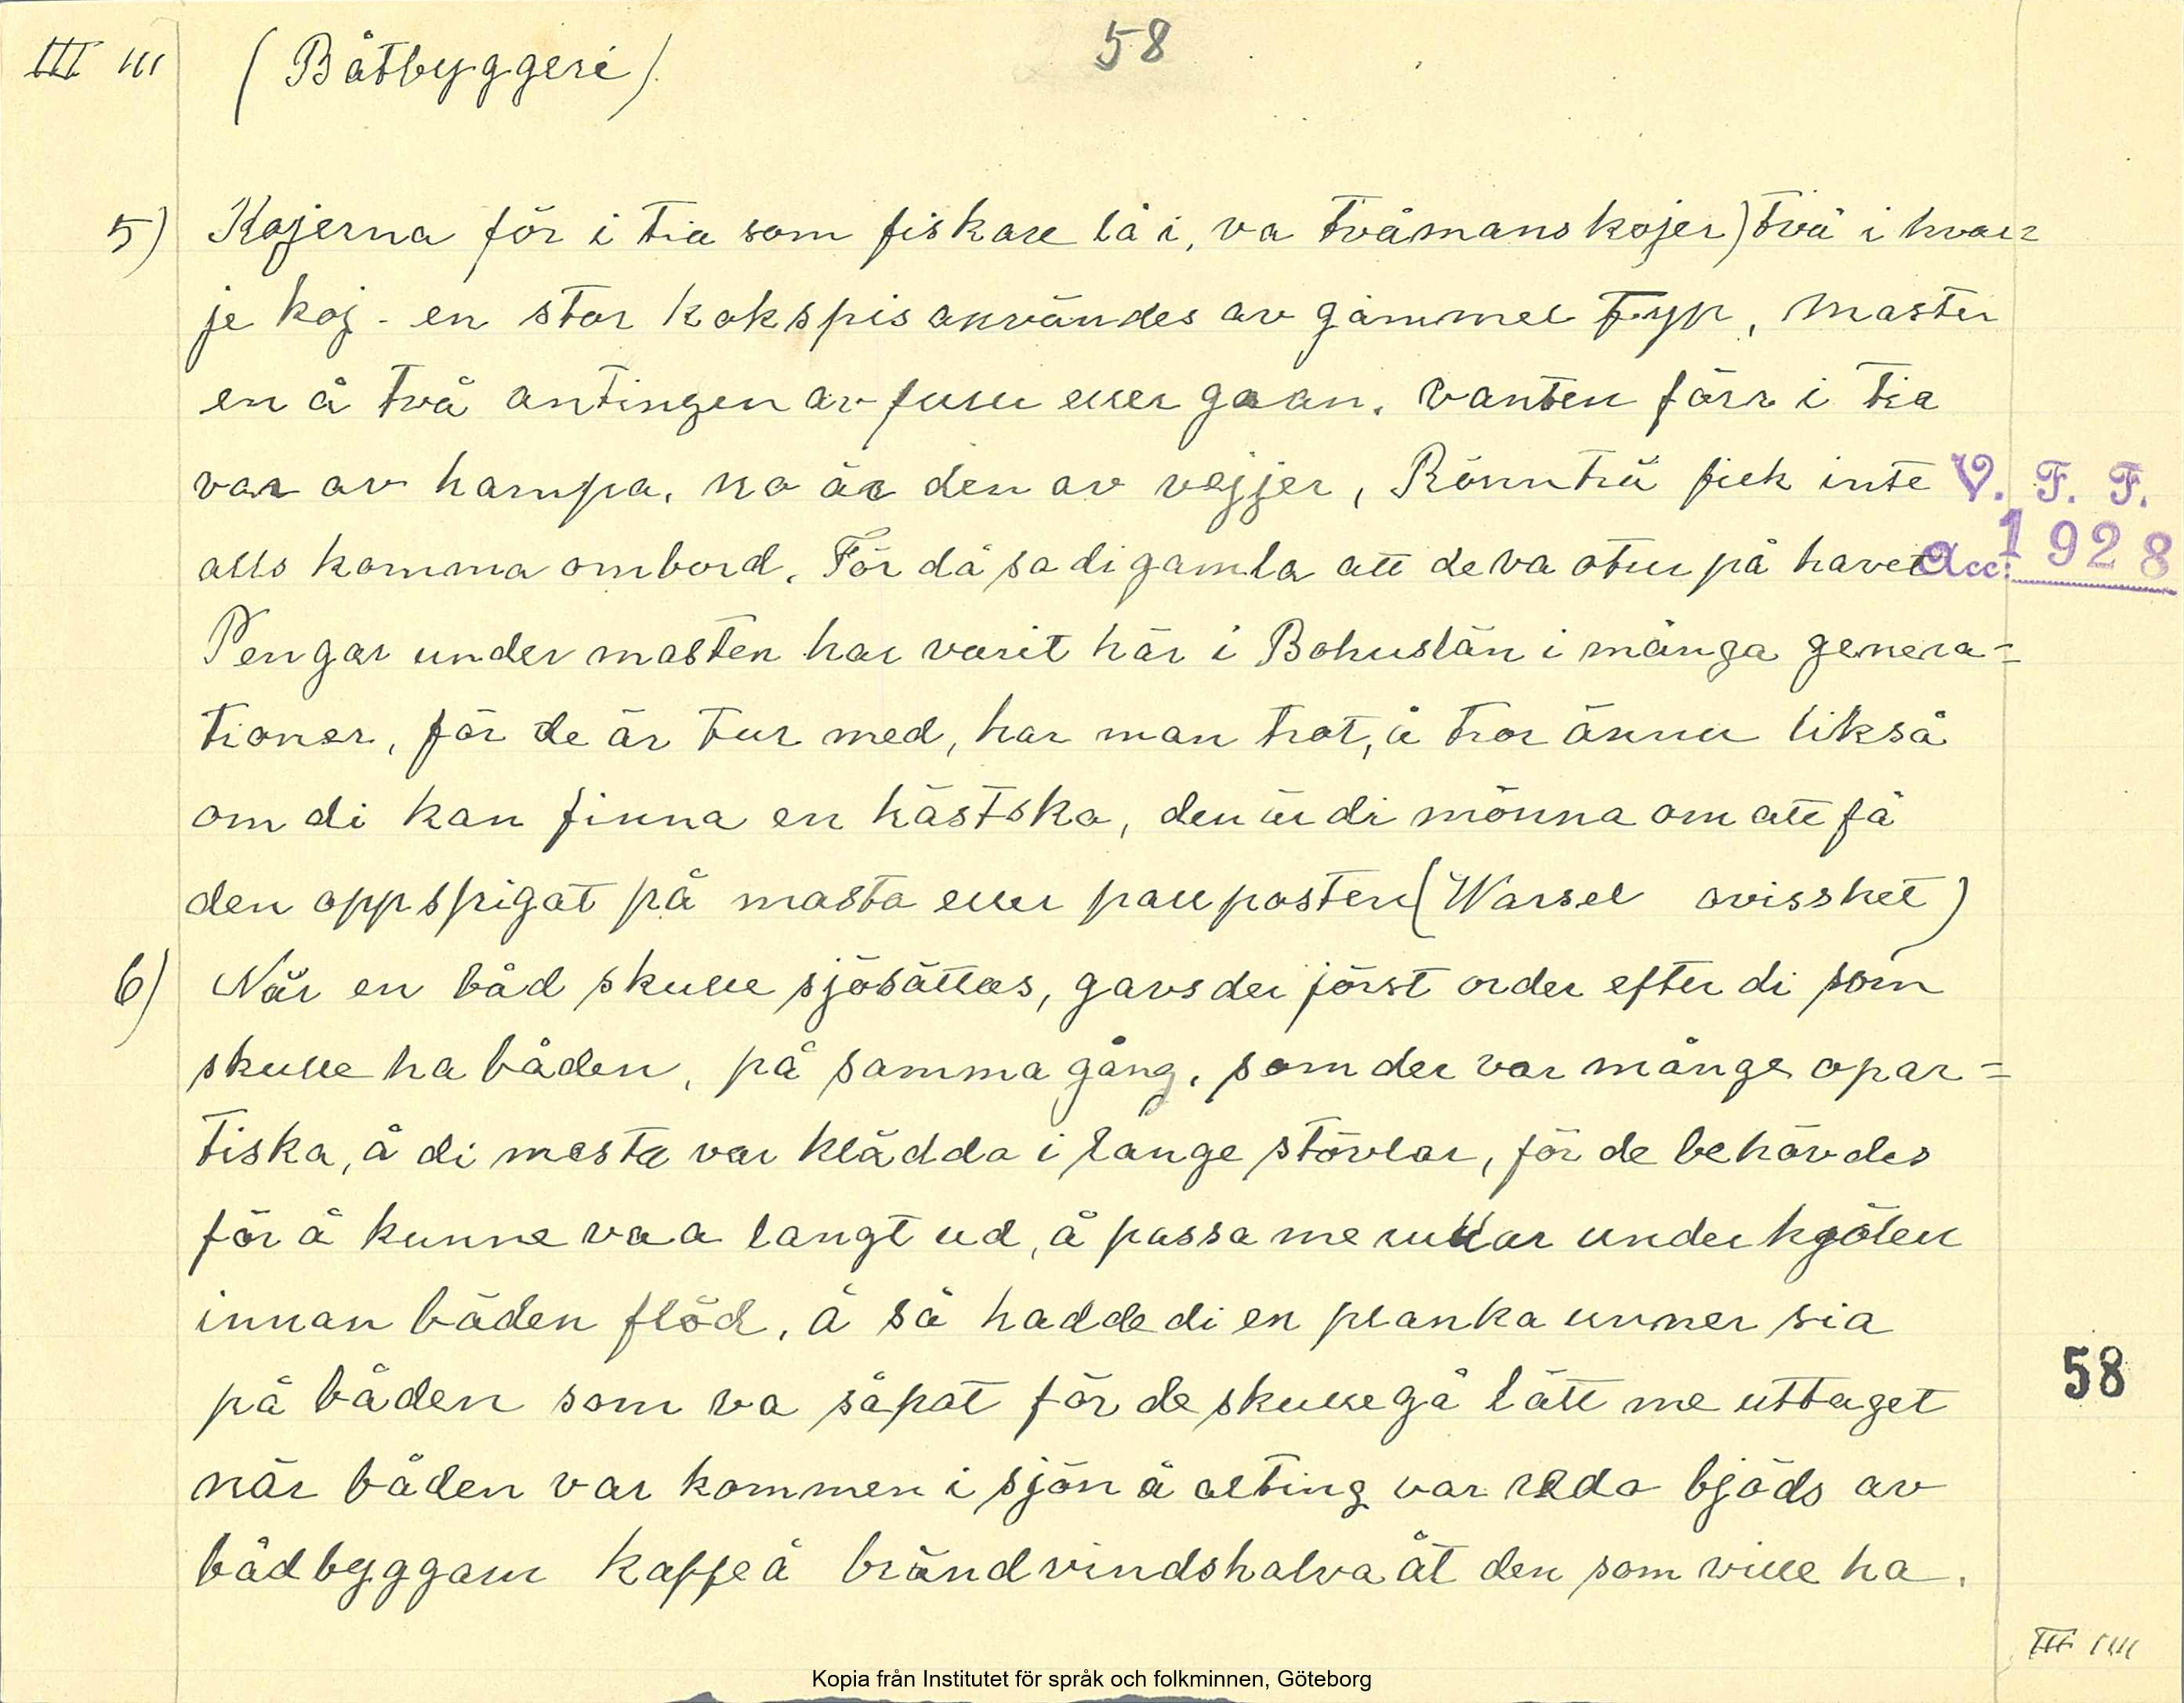 III III
(Båtbyggeri)
58
5) Kojerna för i tia som fiskare lå i, va tvåmanskojer) två i hvar=
je koj - en stor kokspis användes av gammel typ, master
en å två antingen av furu eller graan. Vanten förr i tia
var av hampa, no är den av vejjer, Rönnträ fick inte
alls komma ombord. För då sa di gamla att de va otur på havet
V. F. F.
Acc: 1928
Pengar under masten har varit här i Bohuslän i många genera=
tioner, för de är tur med, har man trot, å tror ännu likså
om di kan finna en hästsko, den är di mönna om att få
den oppspigat på masta eller pallposten (Warsel ovisshet)
6) När en båd skulle sjösättas, gavs der först order efter di som
skulle ha båden, på samma gång, som der var månge opar=
tiska, å di mesta var klädda i lange stövlar, för de behövdes
för å kunne vaa langt ud, å passa me rullar under kjölen
innan båden flöd, å så hadde di en planka unner sia
på båden som va såpat för de skulle gå lätt me uttaget
58
når båden var kommen i sjön å alting var reda bjöds av
bådbyggarn kaffe å brändvindshalva åt den som ville ha.
III IIII
Kopia från Institutet för språk och folkminnen, Göteborg